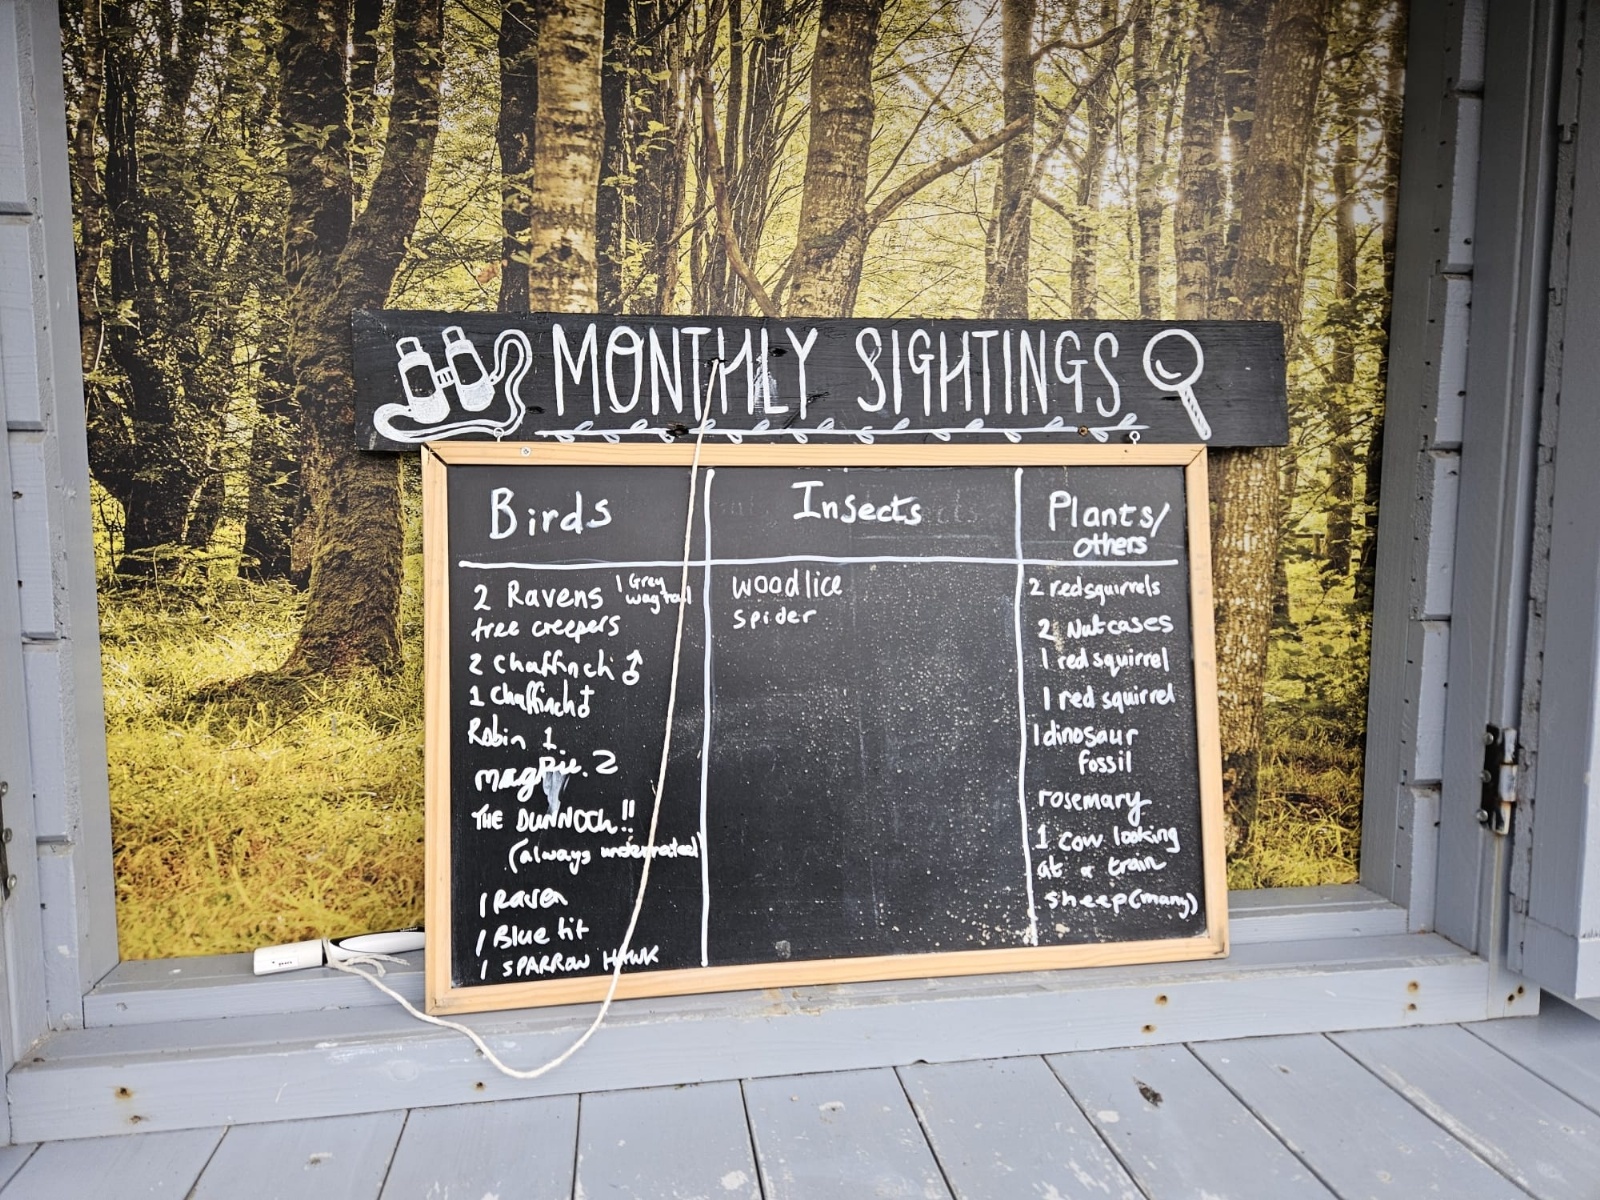 MONTHLY SIGHTINGS
Birds
2 Ravens
1 Grey
wagtail
tree creepers
2 Chaffinch ♂
1 Chaffinch
Robin 1
magpie. 2
THE DUNNOCK!!
(always underrated)
1 Raven
1 Blue tit
1 SPARROW HAWK
Insects
woodlice
spider
Plants/
others
2 redsquirrels
2 Nutcases
1 red squirrel
1 red squirrel
1 dinosaur
fossil
rosemary
1 cow looking
at a train
sheep (many)